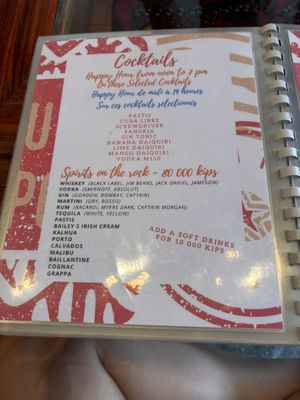 Cocktails
Happy Hour from noon to 7 pm
On these Selected Cocktails
Happy Hour de midi à 19 heures
Sur ces cocktails sélectionnés
PASTIS
CUBA LIBRE
SCREWDRIVER
SANGRIA
GIN TONIC
BANANA DAIQUIRI
LIME DAIQUIRI
MANGO DAIQUIRI
VODKA MISO
Spirits on the rock - 80 000 kips
WHISKEY (BLACK LABEL, JIM BEANS, JACK DANIEL, JAMESON)
VODKA (SMIRNOFF, ABSOLUT)
GIN (GORDON, BOMBAY, CAPTAIN)
MARTINI (DRY, ROSSO)
RUM (BACARDI, MYERS DARK, CAPTAIN MORGAN)
TEQUILA (WHITE, YELLOW)
PASTIS
BAILEY'S IRISH CREAM
KALHUA
PORTO
CALVADOS
MALIBU
BAILLANTINE
COGNAC
GRAPPA
ADD A SOFT DRINKS
FOR 10 000 KIPS